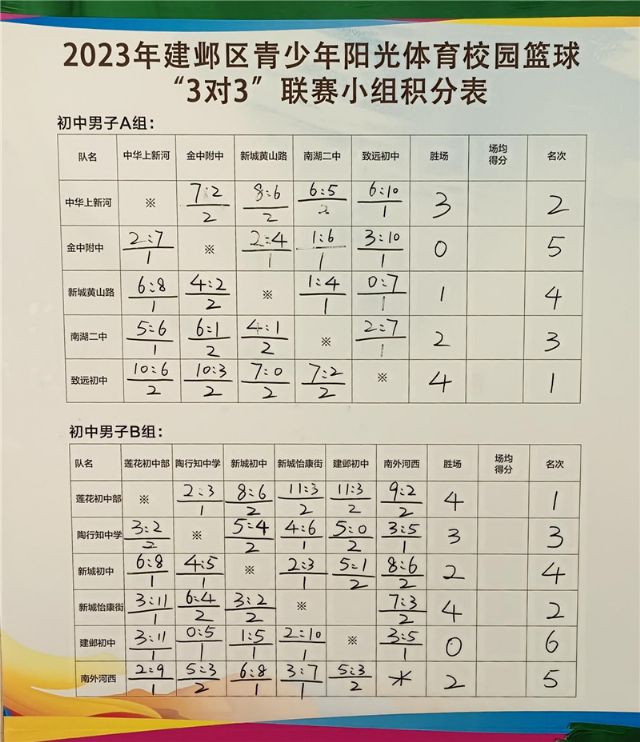 2023年建邺区青少年阳光体育校园篮球
“3对3”联赛小组积分表
初中男子A组：
队名 中华上新河 金中附中 新城黄山路 南湖二中 致远初中 胜场 场均得分 名次
中华上新河 ※ 7:2/2 8:6/2 6:5/2 6:10/1 3 2
金中附中 2:7/1 ※ 2:4/1 1:6/1 3:10/1 0 5
新城黄山路 6:8/1 4:2/2 ※ 1:4/1 0:7/1 1 4
南湖二中 5:6/1 6:1/2 4:1/2 ※ 2:7/1 2 3
致远初中 10:6/2 10:3/2 7:0/2 7:2/2 ※ 4 1
初中男子B组：
队名 莲花初中部 陶行知中学 新城初中 新城怡康街 建邺初中 南外河西 胜场 场均得分 名次
莲花初中部 ※ 2:3/1 8:6/2 11:3/2 11:3/2 9:2/2 4 1
陶行知中学 3:2/2 ※ 5:4/2 4:6/1 5:0/2 3:5/1 3 3
新城初中 6:8/1 4:5/1 ※ 2:3/1 5:1/2 8:6/2 2 4
新城怡康街 3:11/1 6:4/2 3:2/2 ※ 7:3/2 4 2
建邺初中 3:11/1 0:5/1 1:5/1 2:10/1 ※ 3:5/1 0 6
南外河西 2:9/1 5:3/2 6:8/1 3:7/1 5:3/2 * 2 5